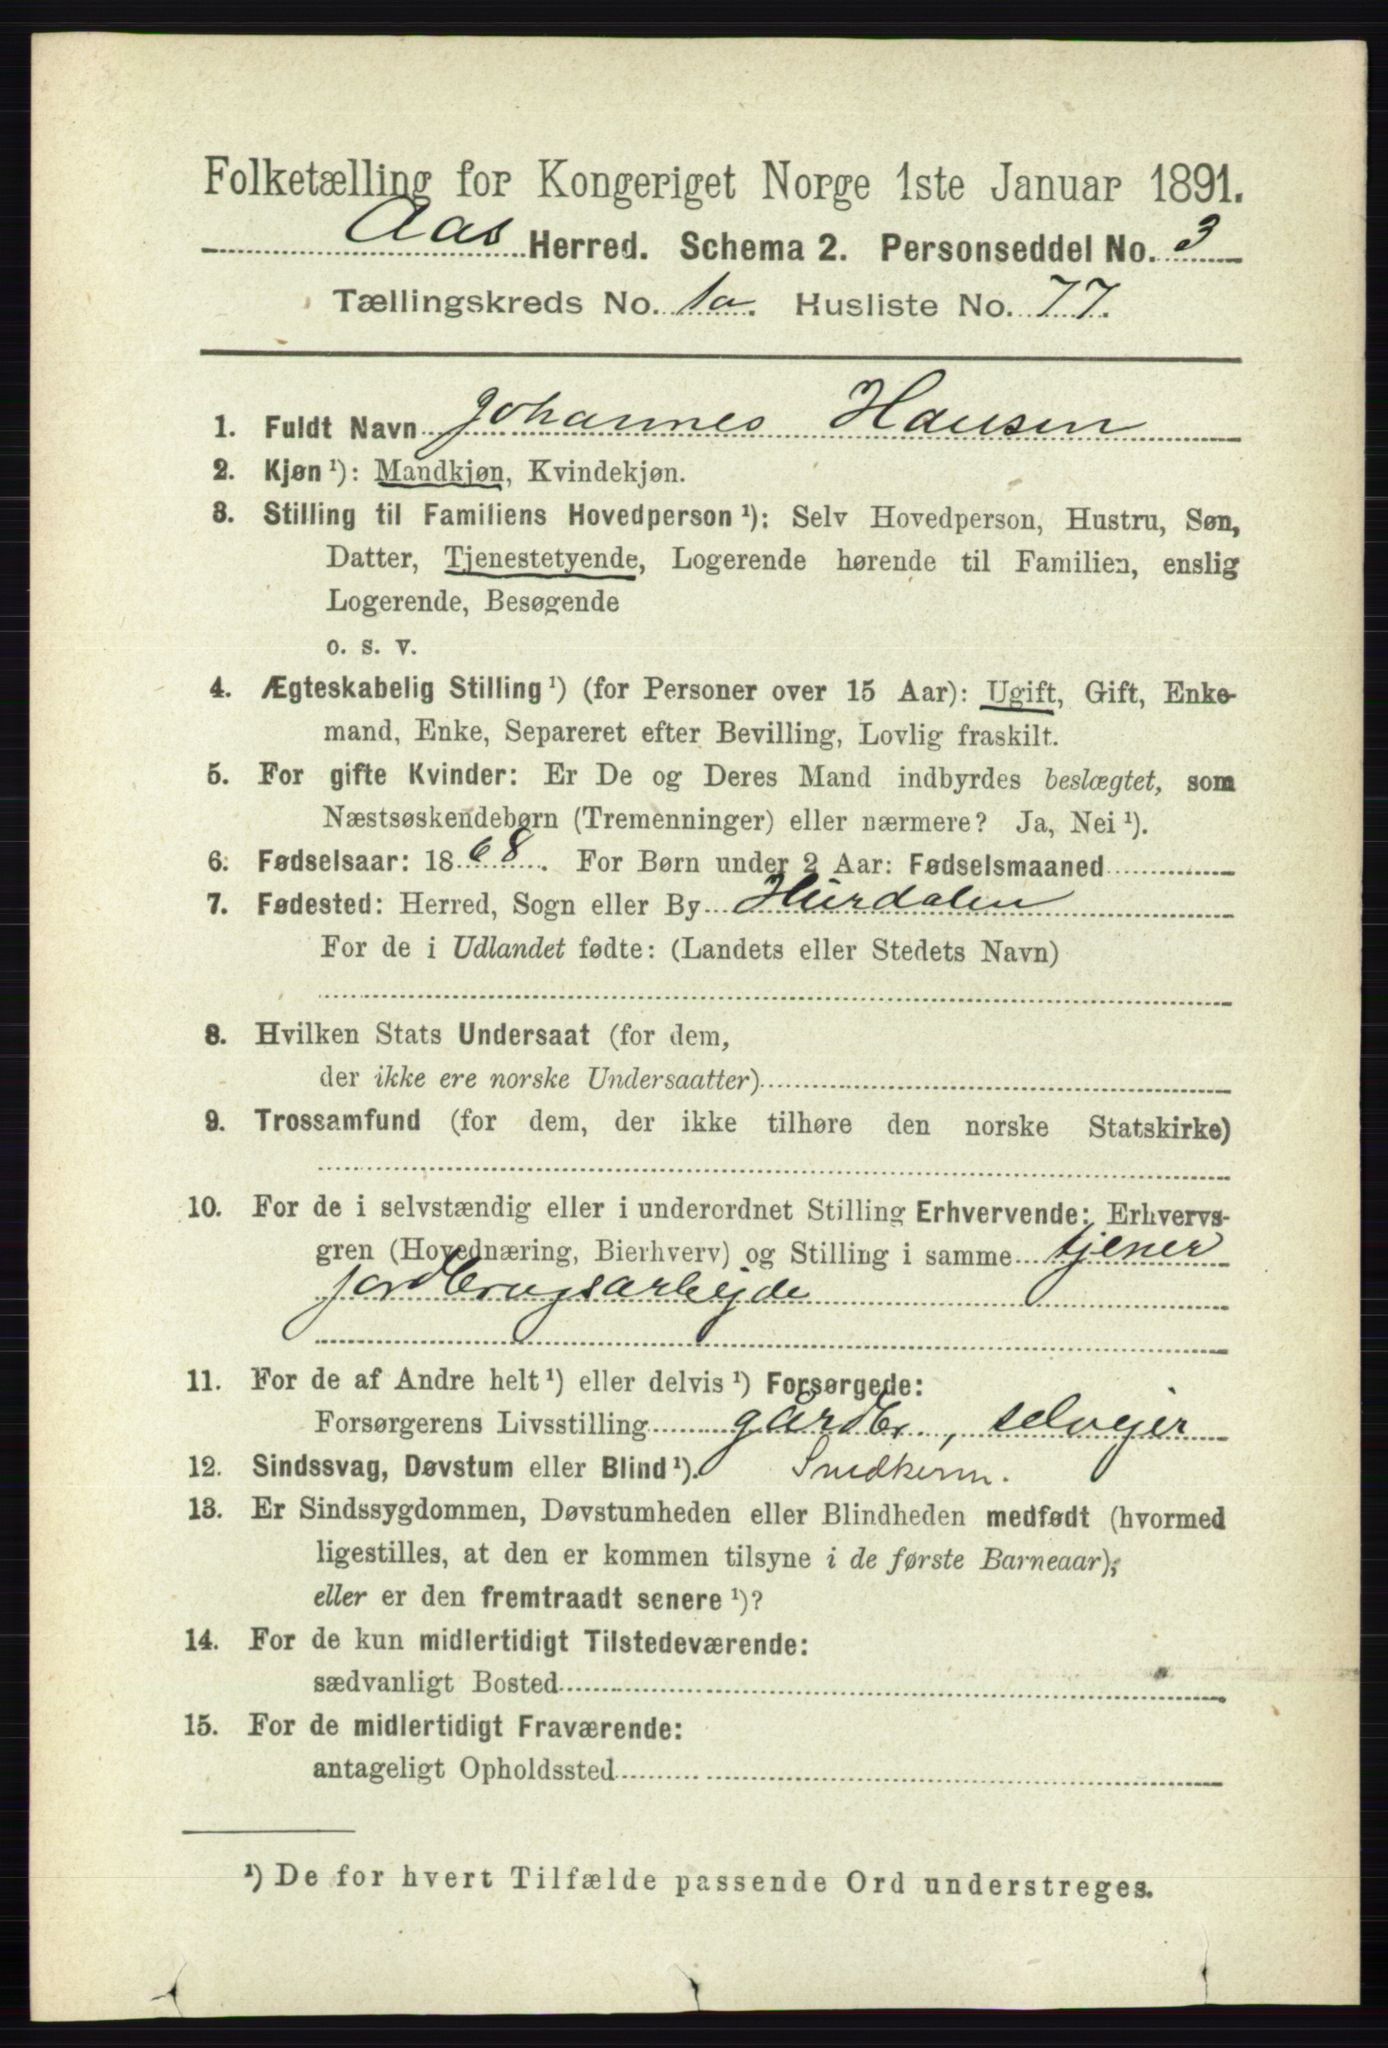 Folketælling for Kongeriget Norge 1ste Januar 1891.
Aas Herred. Schema 2. Personseddel No. 3
Tællingskreds No. 1a. Husliste No. 77.
1. Fuldt Navn Johannes Hansen
2. Kjøn ¹): Mandkjøn, Kvindekjøn.
3. Stilling til Familiens Hovedperson ¹): Selv Hovedperson, Hustru, Søn,
Datter, Tjenestetyende, Logerende hørende til Familien, enslig
Logerende, Besøgende
o. s. v.
4. Ægteskabelig Stilling ¹) (for Personer over 15 Aar): Ugift, Gift, Enke-
mand, Enke, Separeret efter Bevilling, Lovlig fraskilt.
5. For gifte Kvinder: Er De og Deres Mand indbyrdes beslægtet, som
Næstsøskendebørn (Tremenninger) eller nærmere? Ja, Nei ¹).
6. Fødselsaar: 1868. For Børn under 2 Aar: Fødselsmaaned
7. Fødested: Herred, Sogn eller By Hurdalen
For de i Udlandet fødte: (Landets eller Stedets Navn)
8. Hvilken Stats Undersaat (for dem,
der ikke ere norske Undersaatter)
9. Trossamfund (for dem, der ikke tilhøre den norske Statskirke)
10. For de i selvstændig eller i underordnet Stilling Erhvervende: Erhvervs-
gren (Hovednæring, Bierhverv) og Stilling i samme tjener
jordbrugsarbejde
11. For de af Andre helt ¹) eller delvis ¹) Forsørgede:
Forsørgerens Livsstilling gårdbr, selvejer
12. Sindssvag, Døvstum eller Blind ¹).
13. Er Sindssygdommen, Døvstumheden eller Blindheden medfødt (hvormed
ligestilles, at den er kommen tilsyne i de første Barneaar);
eller er den fremtraadt senere ¹)?
14. For de kun midlertidigt Tilstedeværende:
sædvanligt Bosted
15. For de midlertidigt Fraværende:
antageligt Opholdssted
¹) De for hvert Tilfælde passende Ord understreges.